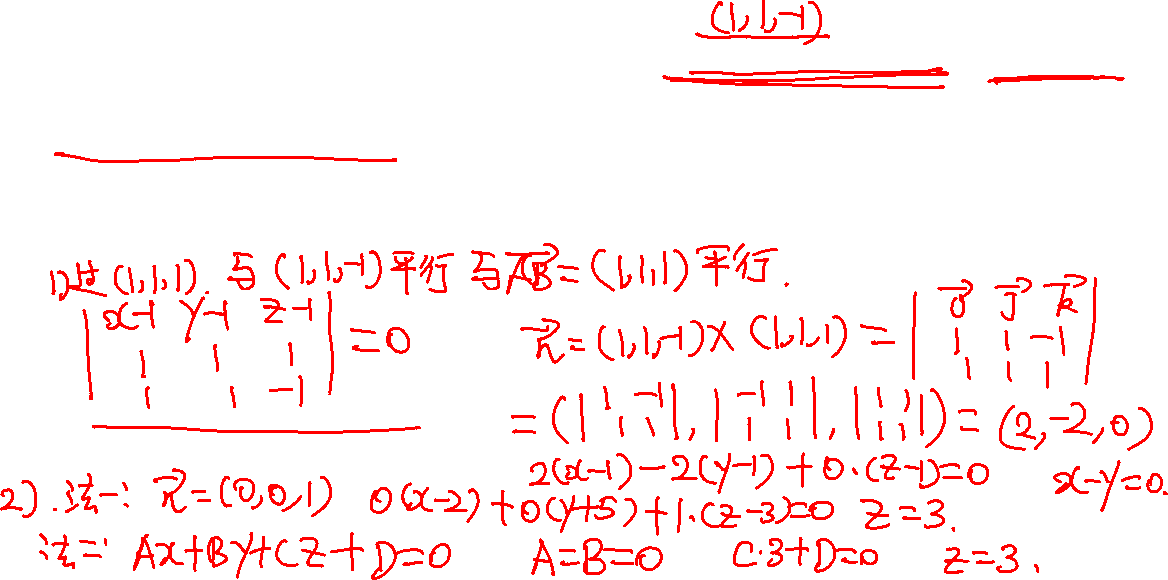 (1,1,-1)
1)过(1,1,1). 与(1,1,-1)平行 与AB=(1,1,1)平行.
| x-1 y-1 z-1 |
| 1 1 1 | =0
| 1 1 -1 |
n=(1,1,-1)×(1,1,1)= | i j k |
| 1 1 -1 |
| 1 1 1 |
=(|1 -1|, |-1 1|, |1 1|)=(2,-2,0)
|1 1|, |1 1|, |1 1|
2(x-1)-2(y-1)+0·(z-1)=0 x-y=0.
2).法一: n=(0,0,1) 0(x-2)+0(y+5)+1·(z-3)=0 z=3.
法二: Ax+By+Cz+D=0 A=B=0 C·3+D=0 z=3.